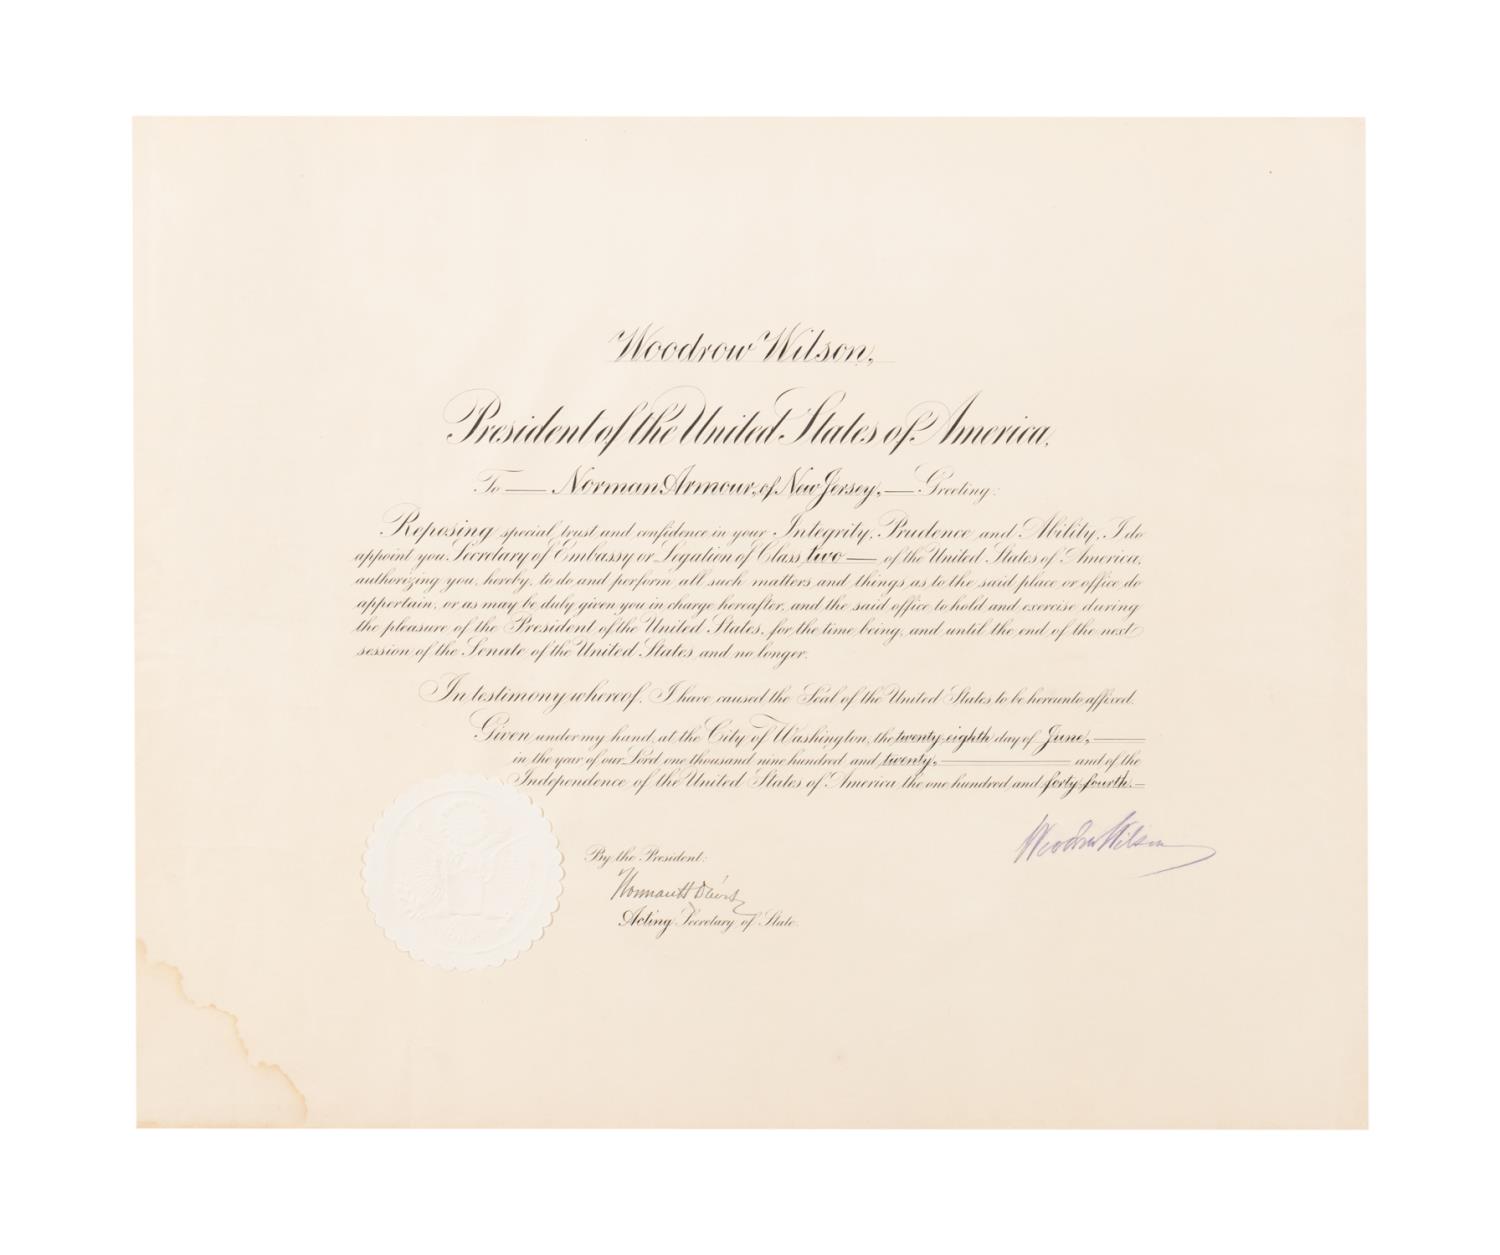 Woodrow Wilson,
President of the United States of America,
To — Norman Armour, of New Jersey, — Greeting:
Reposing special trust and confidence in your Integrity, Prudence and Ability, I do
appoint you Secretary of Embassy or Legation of Class two — of the United States of America,
authorizing you, hereby, to do and perform all such matters and things as to the said place or office do
appertain, or as may be duly given you in charge hereafter, and the said office to hold and exercise during
the pleasure of the President of the United States, for the time being, and until the end of the next
session of the Senate of the United States, and no longer.
In testimony whereof, I have caused the Seal of the United States to be hereunto affixed.
Given under my hand, at the City of Washington, the twenty eighth day of June, —
in the year of our Lord one thousand nine hundred and twenty, — and of the
Independence of the United States of America, the one hundred and forty fourth. —
Woodrow Wilson
By the President:
Norman H Davis
Acting Secretary of State.